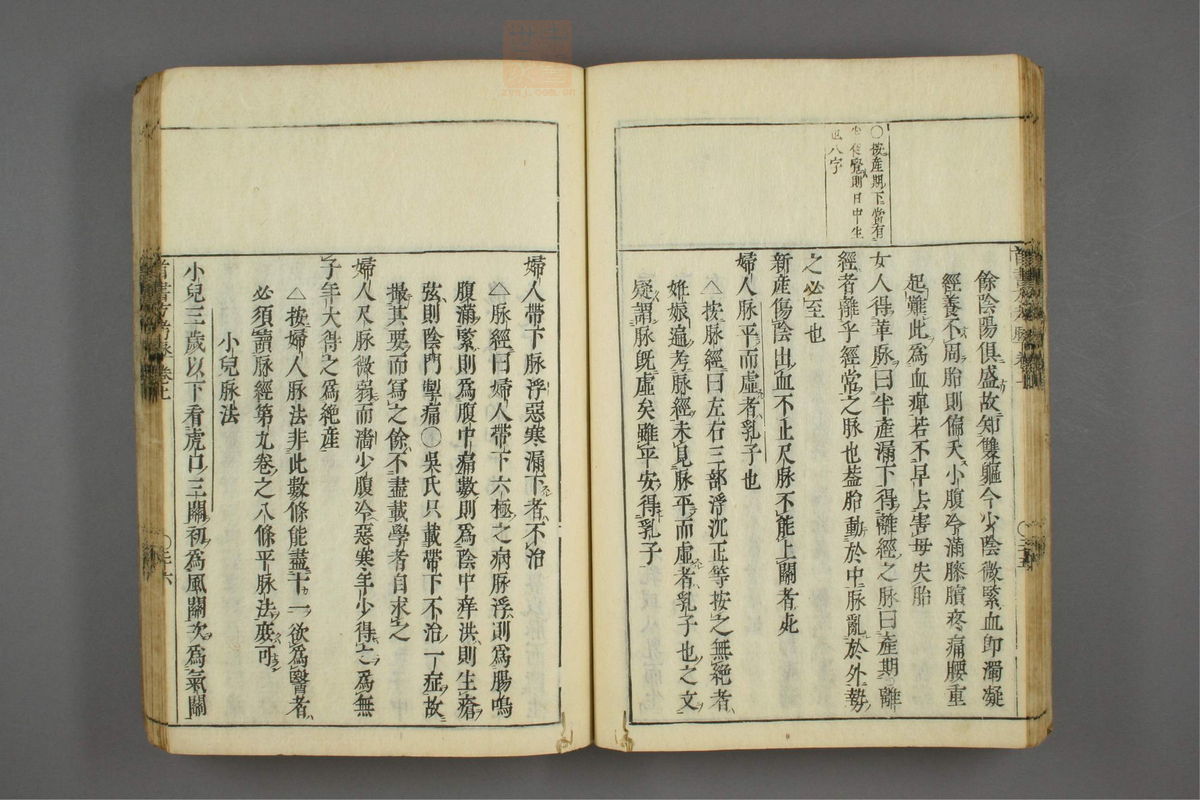 ○按產期下當有
也八字
餘陰陽俱盛故知雙軀今少陰微緊血卽濁凝
經養不周胎則偏夭小腹冷滿膝臏疼痛腰重
起難此爲血痺若不早去害母失胎
女人得革脉曰半產漏下得離經之脉曰產期離
經者離乎經常之脉也葢胎動於中脉亂於外勢
之必至也
新產傷陰出血不止尺脉不能上關者死
婦人脉平而虛者乳子也
△按脉經曰左右三部浮沉正等按之無絕者
姙娠遍考脉經未見脉平而虛者乳子也之文
疑謂脉旣虛矣雖平安得乳子
婦人帶下脉浮惡寒漏下者不治
△脉經曰婦人帶下六極之病脉浮則爲腸鳴
腹滿緊則爲腹中痛數則爲陰中痒洪則生瘡
弦則陰門掣痛○吳氏只載帶下不治一症故
撮其要而寫之餘不盡載學者自求之
婦人尺脉微弱而濇少腹冷惡寒年少得之爲無
子年大得之爲絕產
△按婦人脉法非此數條能盡干一欲爲醫者
必須讀脉經第九卷之八條平脉法庶可
小兒脉法
小兒三歲以下看虎口三關初爲風關次爲氣關